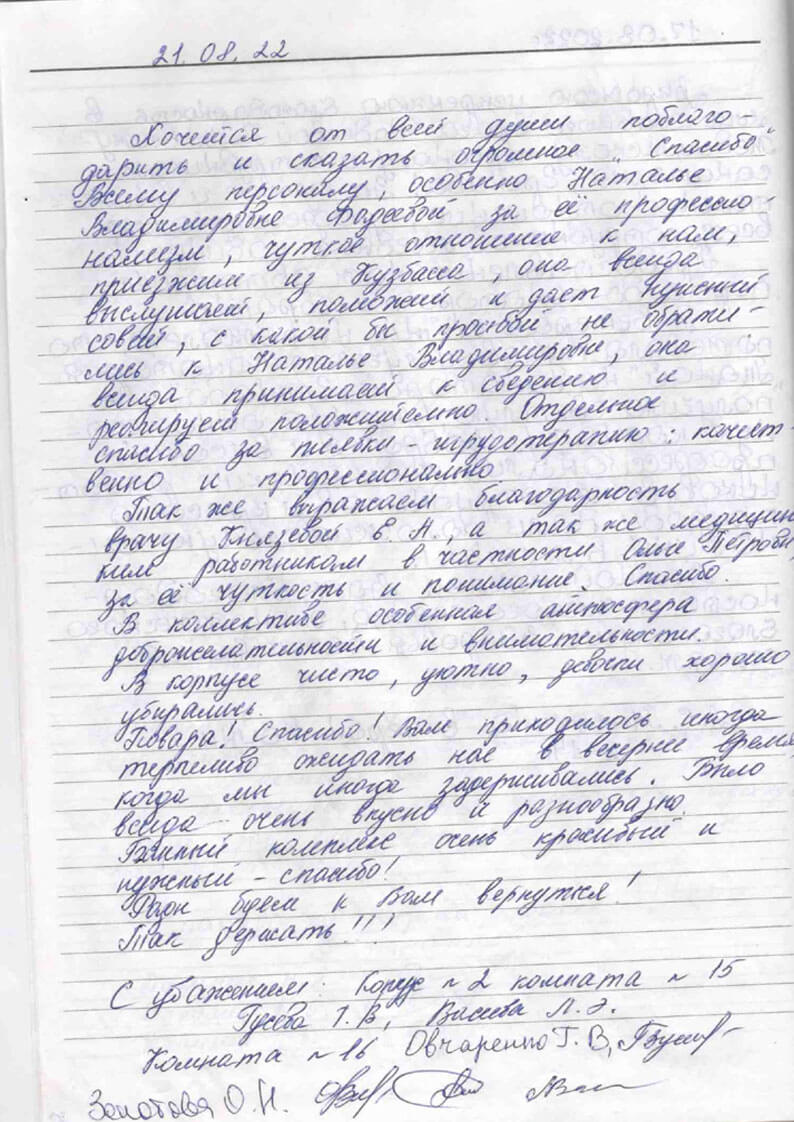 21.08.22
Хочется от всей души поблаго-
дарить и сказать огромное "Спасибо"
Всему персоналу, особенно Наталье
Владимировне Фадеевой за её профессио-
нализм, чуткое отношение к нам,
приезжим из Кузбасса, она всегда
выслушает, поможет и даст нужный
совет, с какой бы просьбой не обрати-
лись к Наталье Владимировне, она
всегда принимает к сведению и
реагирует положительно. Отдельное
спасибо за пиявки - герудотерапию: качест-
венно и профессионально
Так же выражаем благодарность
врачу Князевой Е.А., а так же медицин
ким работникам в частности Ольге Петровн,
за её чуткость и понимание. Спасибо.
В коллективе особенная атмосфера
доброжелательности и внимательности.
В корпусе чисто, уютно, девочки хорошо
убирались.
Повара! Спасибо! Вам приходилось иногда
терпеливо ожидать нас в вечернее время,
когда мы иногда задерживались. Было
всегда очень вкусно и разнообразно.
Банный комплекс очень красивый и
нужный - спасибо!
Рады будем к Вам вернуться!
Так держать!!!
С уважением: Корпус №2 комната №15
Гусева Т.В,  Л.Э.
Комната №16 Овчаренко Г.В,
Золотова О.Н.